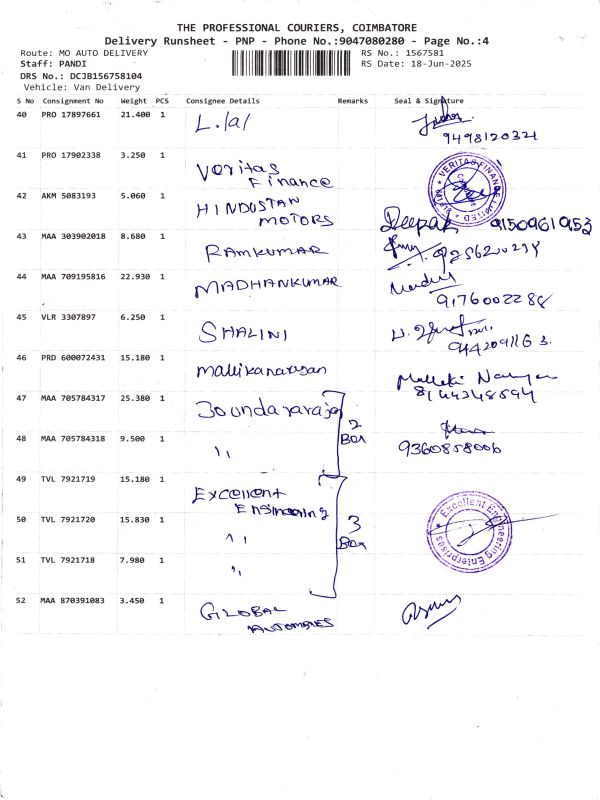 THE PROFESSIONAL COURIERS, COIMBATORE
Delivery Runsheet - PNP - Phone No.:9047080280 - Page No.:4
Route: MO AUTO DELIVERY RS No.: 1567581
Staff: PANDI RS Date: 18-Jun-2025
DRS No.: DCJB156758104
Vehicle: Van Delivery
S No Consignment No Weight PCS Consignee Details Remarks Seal & Signature
40 PRO 17897661 21.400 1 L./a/
9498120321
41 PRO 17902338 3.250 1 Veritas
Finance
VERITAS FINANCE LIMITED
42 AKM 5083193 5.060 1 HINDUSTAN
MOTORS
Deepak 9150961953
43 MAA 303902018 8.680 1 RAMKUMAR
44 MAA 709195816 22.930 1 MADHANKUMAR
9176002288
45 VLR 3307897 6.250 1 SHALINI
9442091163.
46 PRD 600072431 15.180 1 mallikanarayan
8144248594
47 MAA 705784317 25.380 1
2
Box
48 MAA 705784318 9.500 1 ,,
9360858006
49 TVL 7921719 15.180 1 Excellent
Engineering
50 TVL 7921720 15.830 1 ,,
3
Box
Excellent Engineering Enterprises
51 TVL 7921718 7.980 1 ,,
52 MAA 870391083 3.450 1 GLOBAL